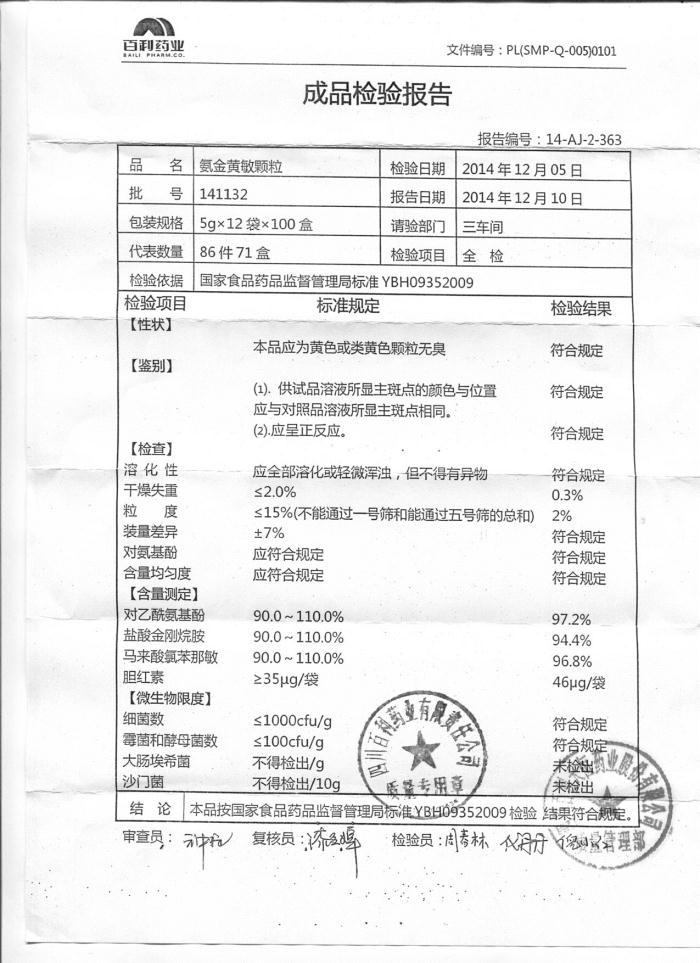 百利药业
BAILI PHARM.CO.
文件编号：PL(SMP-Q-005)0101
成品检验报告
报告编号：14-AJ-2-363
品 名 氨金黄敏颗粒 检验日期 2014 年 12 月 05 日
批 号 141132 报告日期 2014 年 12 月 10 日
包装规格 5g×12 袋×100 盒 请验部门 三车间
代表数量 86 件 71 盒 检验项目 全 检
检验依据 国家食品药品监督管理局标准 YBH09352009
检验项目 标准规定 检验结果
【性状】
本品应为黄色或类黄色颗粒无臭 符合规定
【鉴别】
(1). 供试品溶液所显主斑点的颜色与位置 符合规定
应与对照品溶液所显主斑点相同。
(2).应呈正反应。 符合规定
【检查】
溶 化 性 应全部溶化或轻微浑浊，但不得有异物 符合规定
干燥失重 ≤2.0% 0.3%
粒 度 ≤15%(不能通过一号筛和能通过五号筛的总和) 2%
装量差异 ±7% 符合规定
对氨基酚 应符合规定 符合规定
含量均匀度 应符合规定 符合规定
【含量测定】
对乙酰氨基酚 90.0～110.0% 97.2%
盐酸金刚烷胺 90.0～110.0% 94.4%
马来酸氯苯那敏 90.0～110.0% 96.8%
胆红素 ≥35μg/袋 46μg/袋
【微生物限度】
细菌数 ≤1000cfu/g 符合规定
霉菌和酵母菌数 ≤100cfu/g 符合规定
大肠埃希菌 不得检出/g 未检出
沙门菌 不得检出/10g 未检出
四川百利药业有限责任公司
质量专用章
药业股份有限公司
质量管理部
结 论 本品按国家食品药品监督管理局标准 YBH09352009 检验，结果符合规定。
审查员： 复核员： 检验员：周春林